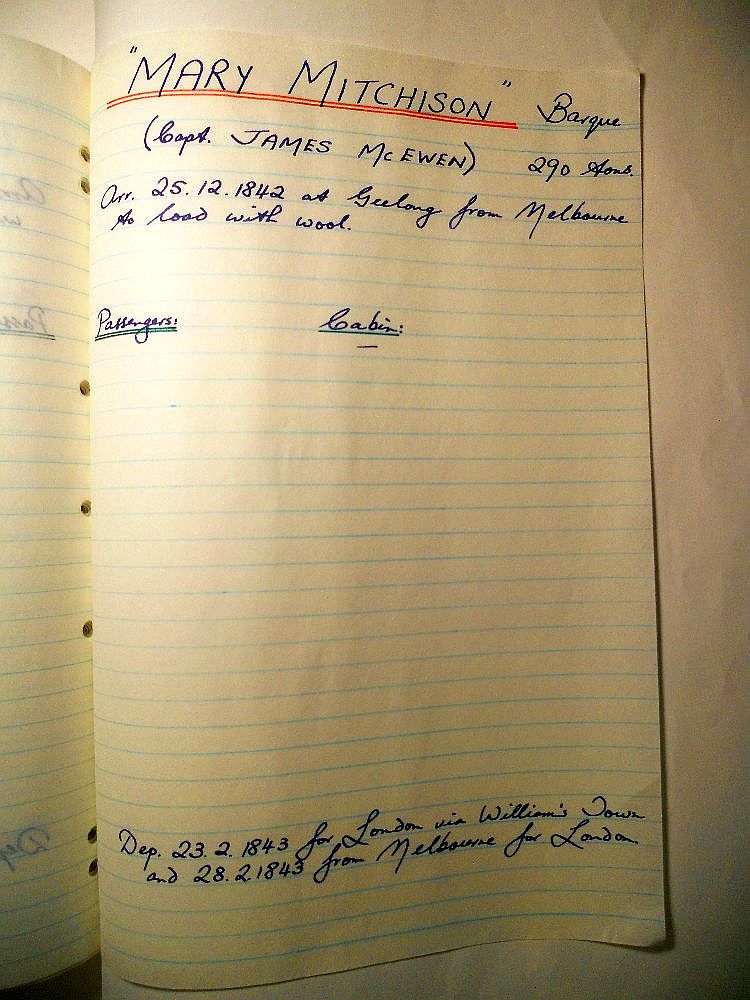 "MARY MITCHISON" Barque
(Capt. JAMES McEWEN) 290 tons.
Arr. 25.12.1842 at Geelong from Melbourne
to load with wool.
Passengers: Cabin:
—
Dep. 23.2.1843 for London via William's Town
and 28.2.1843 from Melbourne for London.